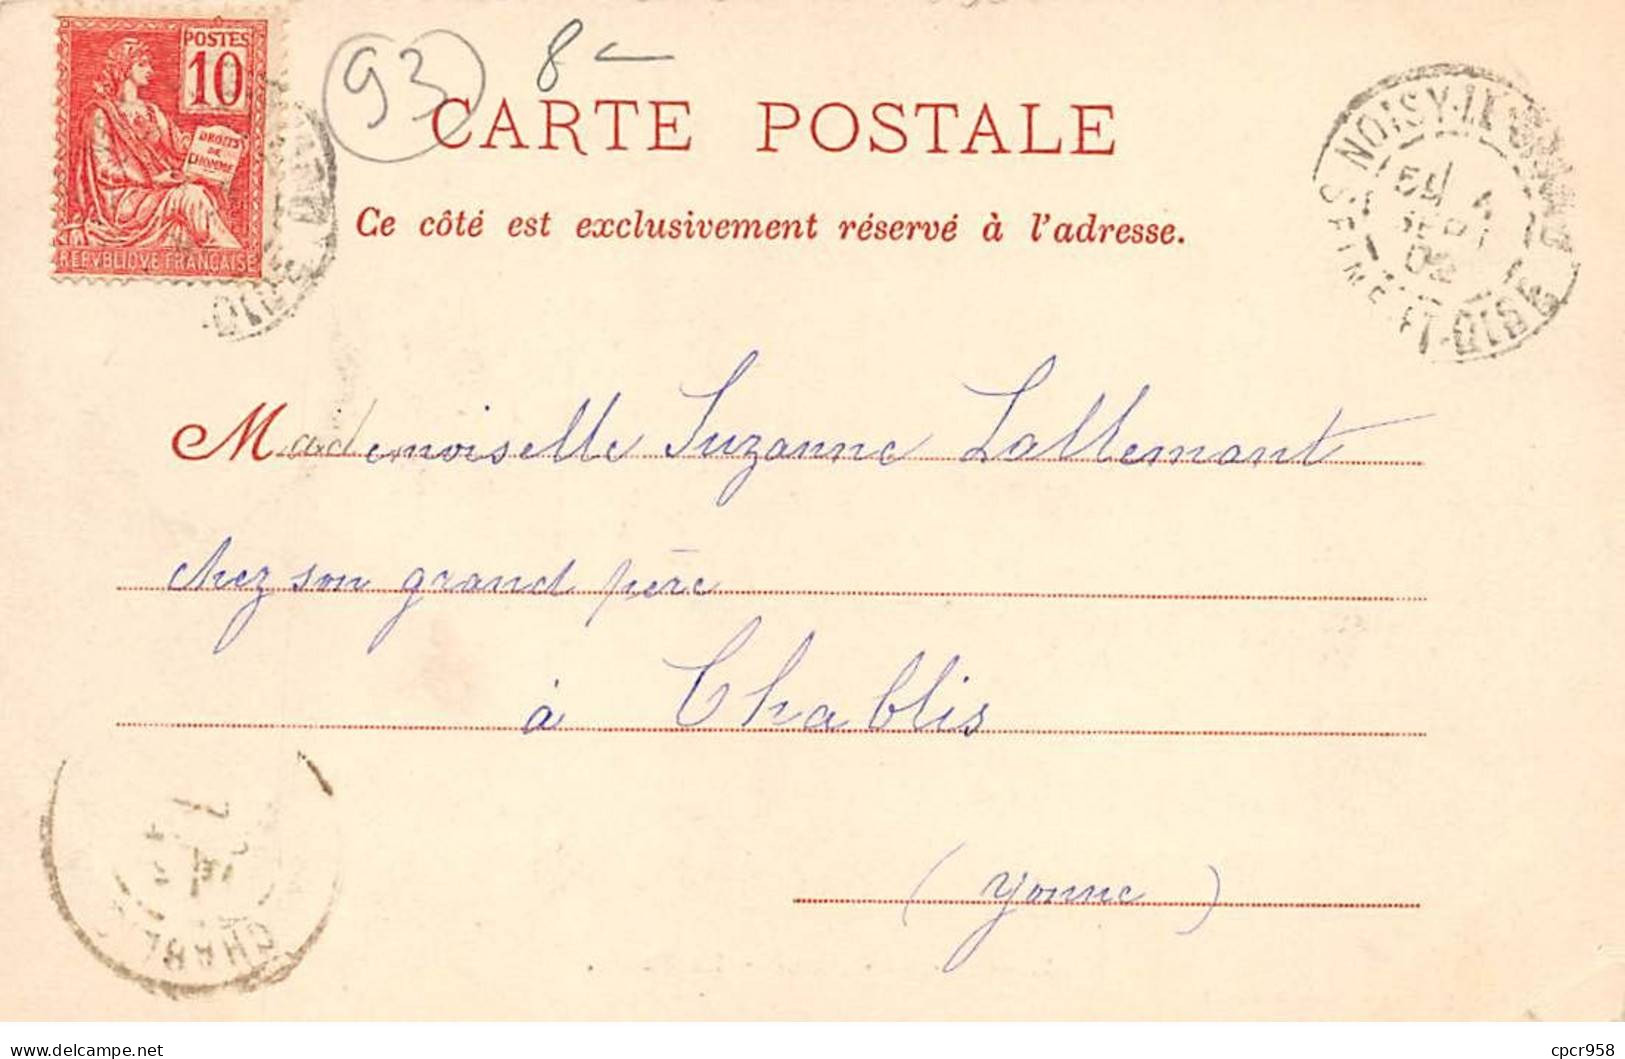 POSTES
10
DROITS
DE
L'HOMME
REPVBLIQVE FRANÇAISE
93
8 -
CARTE POSTALE
Ce côté est exclusivement réservé à l'adresse.
NOISY-LE
SEINE-ET-OISE
02
Mademoiselle Suzanne Lallemant
chez son grand père
à Chablis
(Yonne)
CHABL
delcampe.net
cpcr958